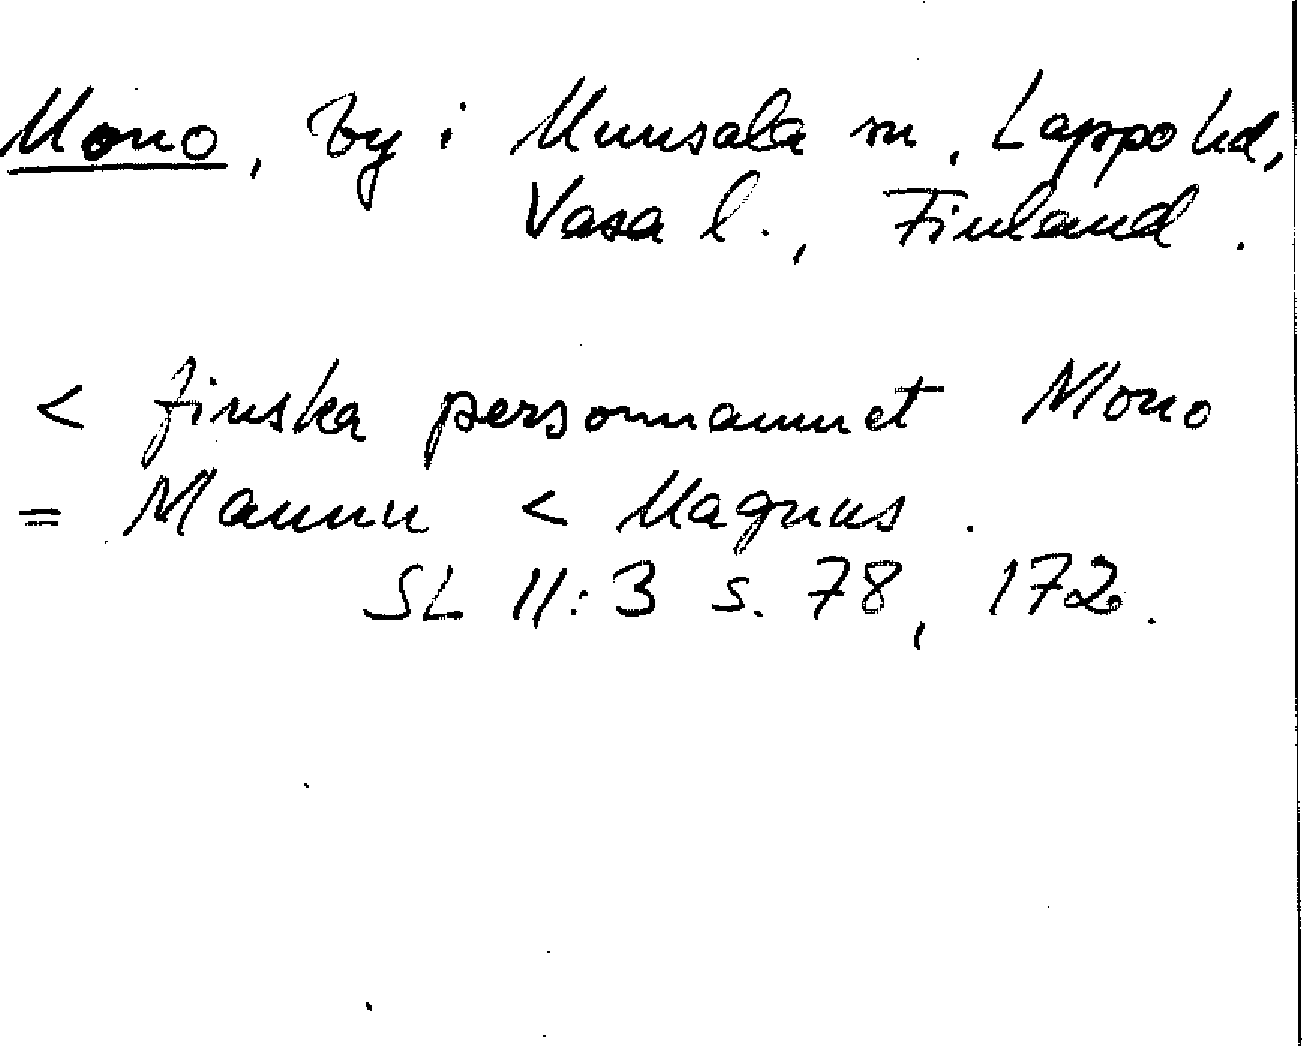 Mono, by i Munsala sn, Lappo hd,
Vasa l., Finland.
< finska personnamnet Mono
= Maunu < Magnus.
SL II:3 s. 78, 172.